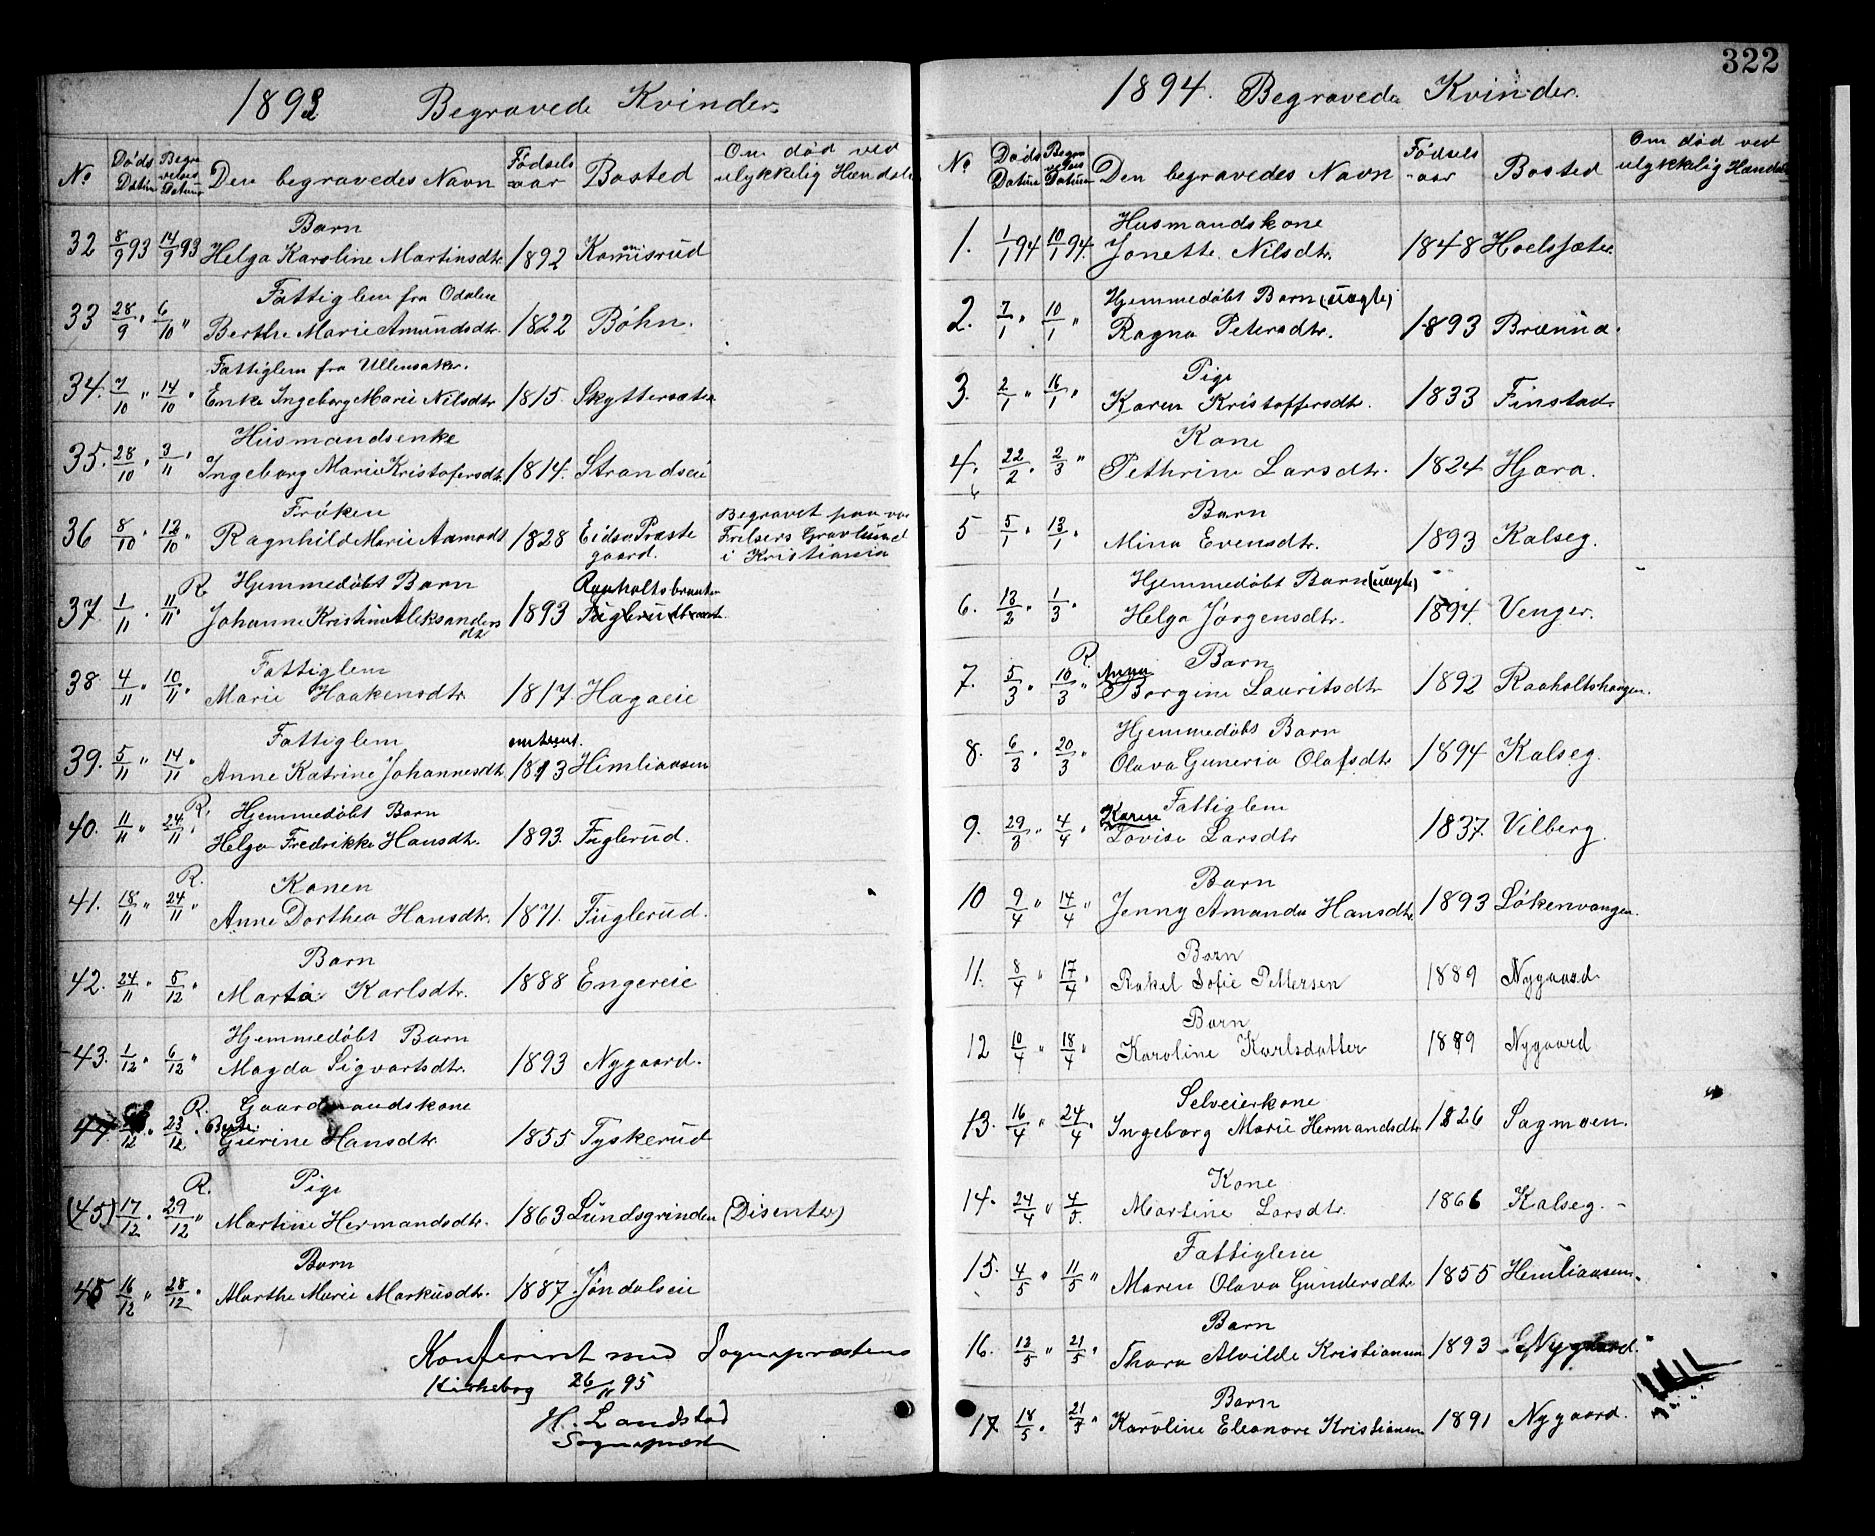 1893 Begravede Kvinder
No Døds Datum Begra velses Datum Den begravedes Navn Fødsels aar Bosted Om død ved ulykkelig Hændel
Barn
32 8/9 93 14/9 93 Helga Karoline Martinsdtr. 1892 Komisrud
Fattiglem fra Odalen
33 28/9 " 6/10 " Berthe Marie Amundsdtr. 1822 Bøhn.
Fattiglem fra Ullensaker.
34. 7/10 " 14/10 " Enke Ingeborg Marie Nilsdtr 1815. Skyttersæter
Husmandsenke
35. 28/10 " 3/11 " Ingeborg Marie Kristofersdtr. 1814. Strandseie
Frøken
36 8/10 " 12/10 " Ragnhild Marie Aamodt 1828 Eidsv. Præste gaard. Begravet paa vor Frelsers Gravlund i Kristiania
R. Hjemmedøbt Barn Raaholtsbraaten
37. 1/11 . 11/11 " Johanne Kristine Aleksanders dtr 1893 Fuglerudbraat.
Fattiglem
38. 4/11 " 10/11 " Marie Haakensdtr. 1817. Hagaeie
Fattiglem omtrent.
39. 5/11 " 14/11 " Anne Katrine Johannesdtr 1813 Himliaasen
R. Hjemmedøbt Barn
40. 11/11 " 24/11 " Helga Fredrikke Hansdtr. 1893. Fuglerud.
R. Konen
41. 18/11 " 24/11 " Anne Dorthea Hansdtr. 1871. Fuglerud.
Barn
42. 24/11 " 5/12 " Marta Karlsdtr. 1888 Engereie
Hjemmedøbt Barn
43. 1/12 " 6/12 " Magda Sigvartsdtr. 1893 Nygaard.
R. Gaardmandskone
44 /12 " 23/12 " Gurine Hansdtr 1855 Tyskerud
R. Pige
(45) 17/12 " 29/12 " Martine Hermandsdtr. 1863 Lundsgrinden (Disenter)
Barn
45 16/12 " 28/12 " Marthe Marie Markusdtr. 1887. Jøndalseie
Konfereret med Sognepræstens
Kirkebog 26/11 95
H. Landstad
Sognepræst
322
1894. Begravede Kvinder.
No Døds Datum Begra velses Datum Den begravedes Navn Fødsels aar Bosted Om død ved ulykkelig Hænde
Husmandskone
1. 1/1 94 10/1 94. Jonette Nilsdtr. 1848 Hoelsæter.
Hjemmedøbt Barn (uægte)
2. 7/1 " 10/1 " Ragna Petersdtr. 1893 Brænna.
Pige
3. 2/1 " 16/1 " Karen Kristoffersdtr. 1833 Finstad
Kone
4. 22/2 " 2/3 " Pethrine Larsdtr. 1824 Hjæra.
Barn
5 5/1 " 13/1 " Mina Evensdtr. 1893 Kalseg.
Hjemmedøbt Barn (uægte)
6. 13/2 " 1/3 " Helga Jørgensdtr. 1894. Venger.
R. Barn
7. 5/3 " 10/3 " Anna Borgine Lauritsdtr 1892 Raaholtshaugen.
Hjemmedøbt Barn
8. 6/3 " 20/3 " Olava Guneria Olafsdtr 1894 Kalseg.
Fattiglem
9. 29/3 " 4/4 " Karen Lovise Larsdtr 1837. Vilberg.
Barn
10 9/4 " 14/4 " Jenny Amanda Hansdtr 1893 Løkenvangen.
Barn
11. 8/4 " 17/4 " Rakel Sofie Pettersen 1889 Nygaard
Barn
12 10/4 " 18/4 " Karoline Karlsdatter 1889 Nygaard
Selveierkone
13. 16/4 " 24/4 " Ingeborg Marie Hermandsdtr 1826 Sagmoen.
Kone
14. 24/4 " 4/5. Martine Larsdtr. 1866 Kalseg.
Fattiglem
15. 4/5 " 11/5 " Maren Olava Gundersdtr 1855 Himliaasen.
Barn
16. 12/5 " 21/5 " Thora Alvilde Kristiansen 1893 Nygaard.
Barn
17 18/5 " 21/5 " Karoline Eleonore Kristiansen 1891 Nygaard.